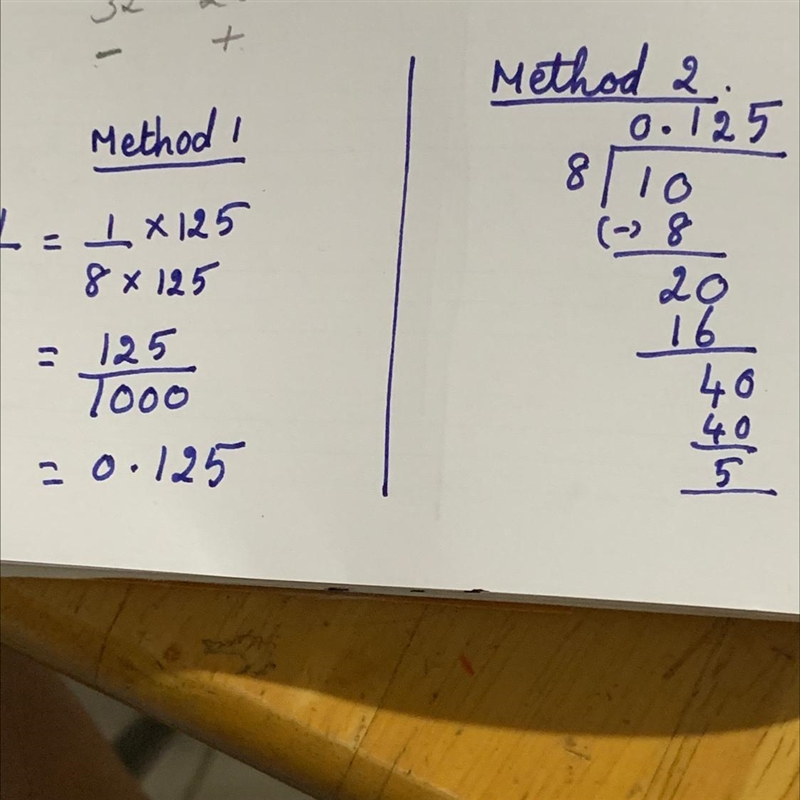 - +
Method 1
= 1 × 125
8 × 125
= 125
1000
= 0.125
Method 2.
0.125
8 10
(-) 8
20
16
40
40
5